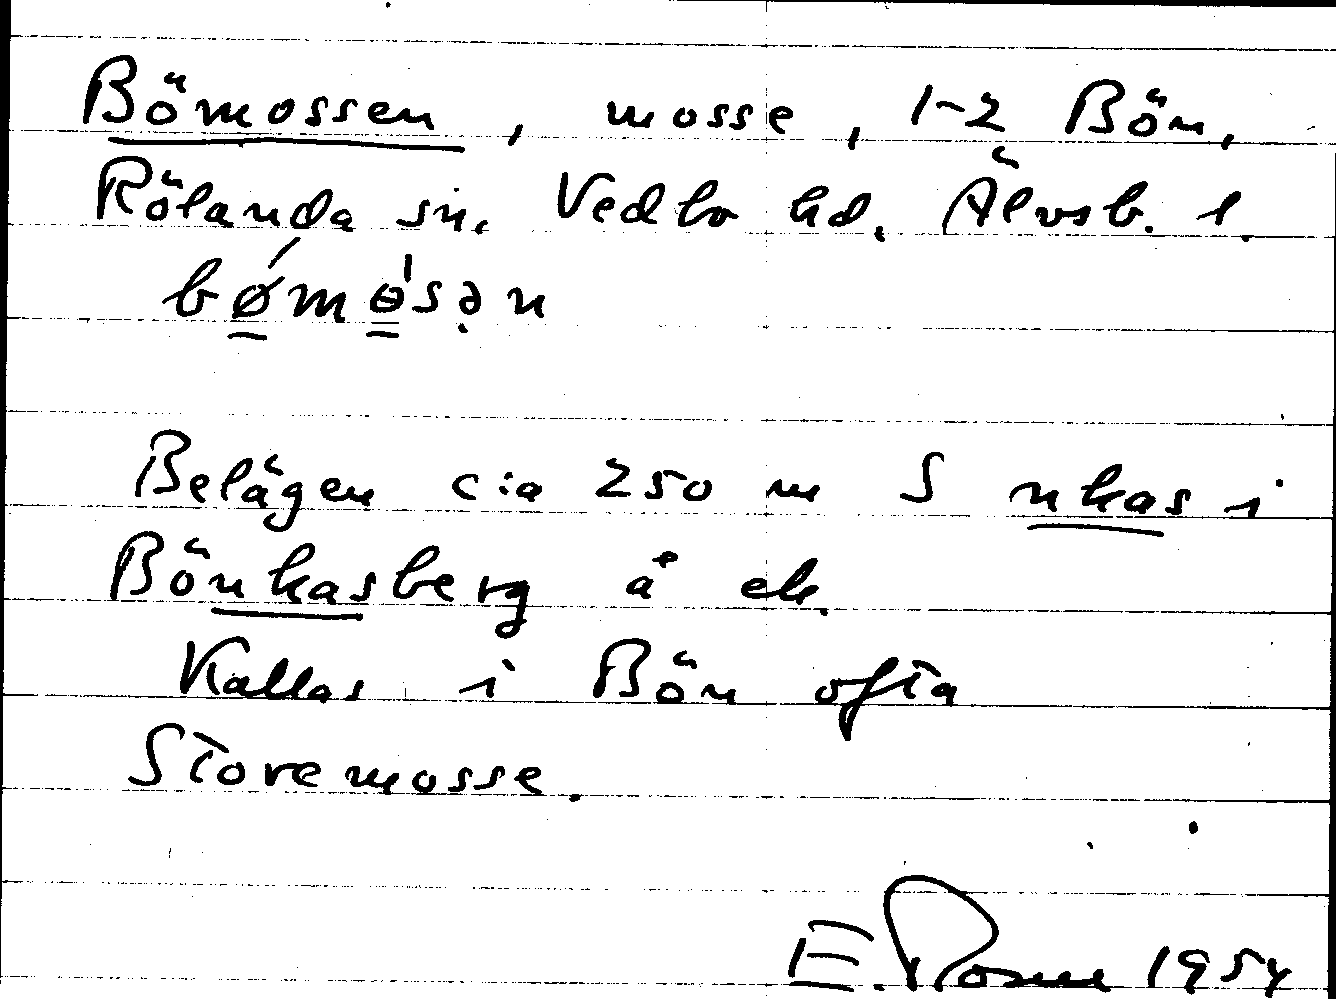 Bömossen, mosse, 1-2 Bön,
Rölanda sn. Vedbo hd. Älvsb. l.
bǿmɵ̀sən
Belägen c:a 250 m S nkas i
Bönkasberg å ek.
Kallas i Bön ofta
Storemosse.
E. 1954